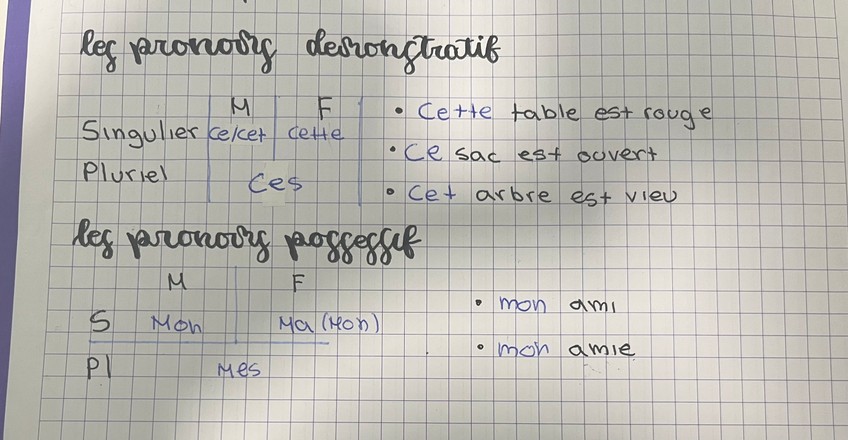 les pronoms demonstratif
M F
Singulier ce/cet cette
Pluriel ces
• Cette table est rouge
• Ce sac est ouvert
• Cet arbre est vieu
les pronoms possessif
M F
S Mon Ma (Mon)
Pl Mes
• mon ami
• mon amie